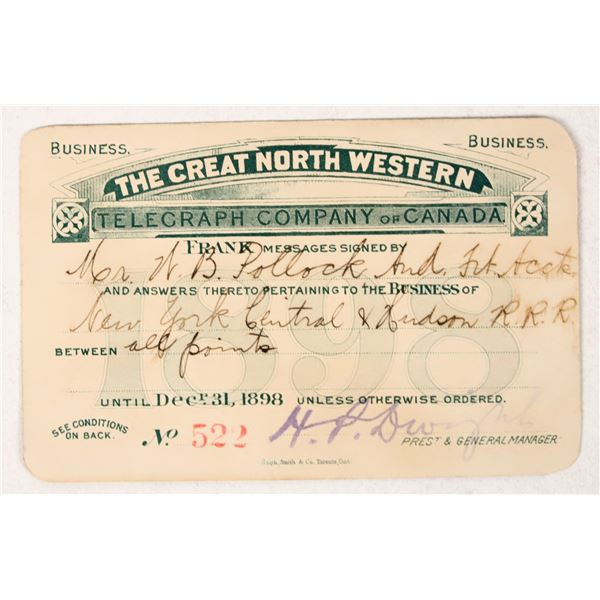 BUSINESS. BUSINESS.
THE GREAT NORTH WESTERN
TELEGRAPH COMPANY OF CANADA.
FRANK MESSAGES SIGNED BY
Mr. W. B. Pollock Aud. Frt. Accts.
AND ANSWERS THERETO PERTAINING TO THE BUSINESS OF
New York Central & Hudson R. R. R.
BETWEEN all points
1898
UNTIL Decr. 31, 1898 UNLESS OTHERWISE ORDERED.
SEE CONDITIONS
ON BACK.
No 522 H. P. Dwight
PREST & GENERAL MANAGER
Rolph, Smith & Co. Toronto, Ont.